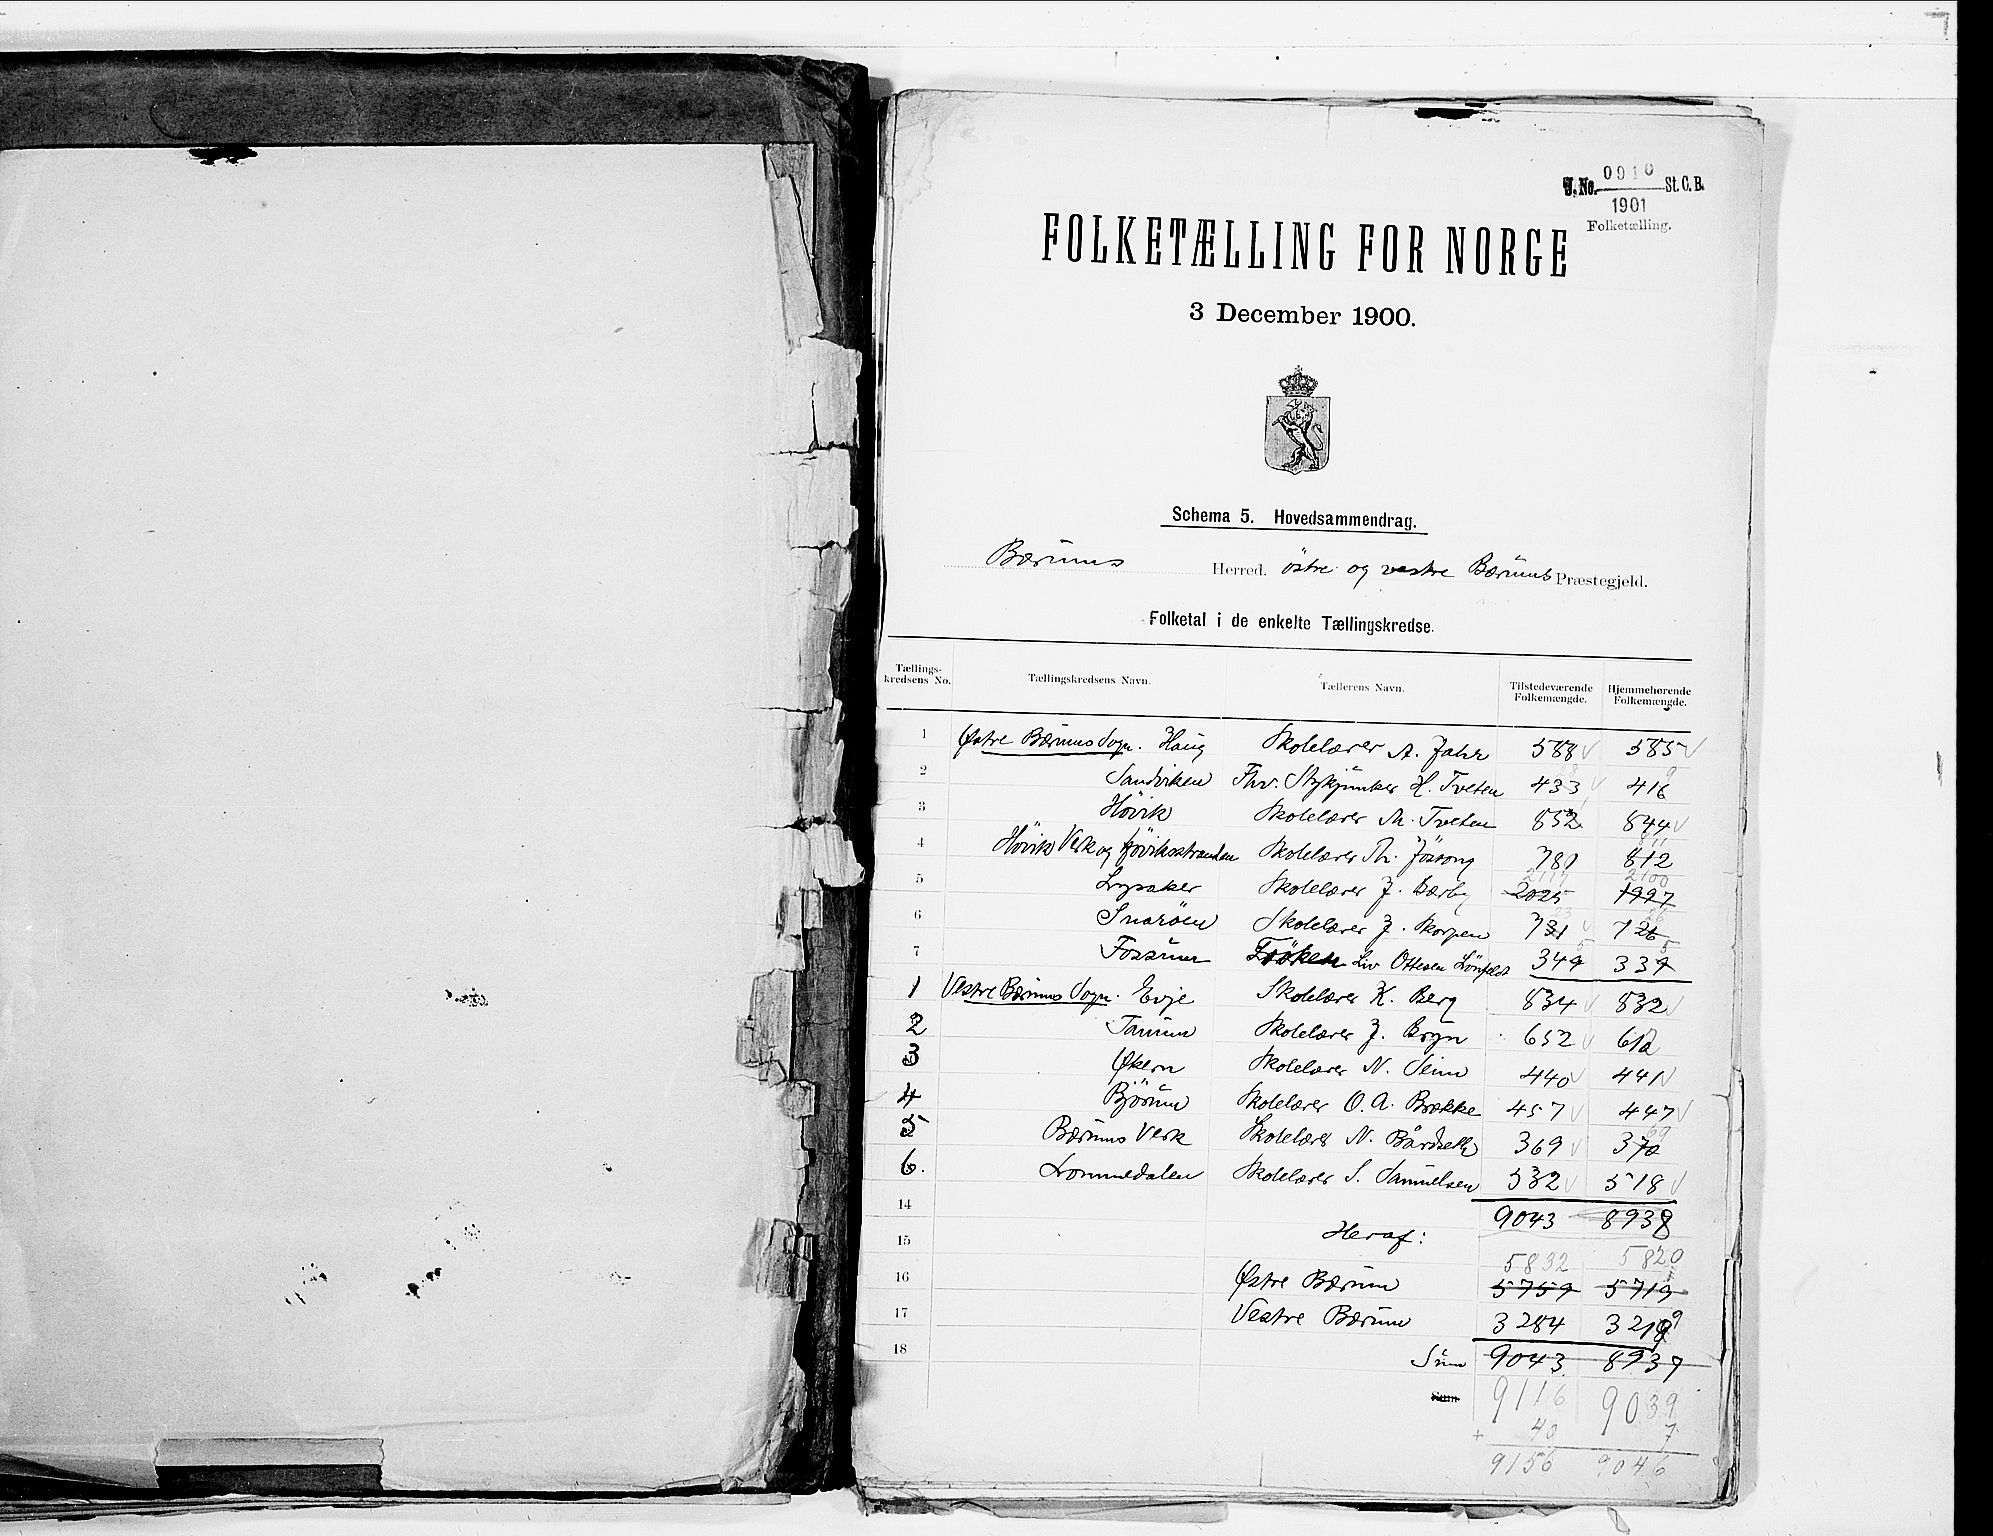 J. No. 0910 St. C. B.
1901
Folketælling.
FOLKETÆLLING FOR NORGE
3 December 1900.
Schema 5. Hovedsammendrag.
Bærums Herred. östre og vestre Bærums Præstegjeld.
Folketal i de enkelte Tællingskredse.
Tællings-kredsens No. Tællingskredsens Navn. Tællerens Navn. Tilstedeværende Folkemængde. Hjemmehørende Folkemængde.
1 Østre Bærums Sogn. Haug Skolelærer A. Jahr 588 585
2 Sandviken Fhv. Stykjunker H. Tveten 433 416
3 Høvik Skolelærer M. Tveten 852 844
4 Hövik Verk og Høvikstranden Skolelærer Th. 781 812
5 Lysaker Skolelærer J. Bærby 2025 1997
6 Snarøen Skolelærer J. Skorpen 731 726
7 Fossum Frøken Liv Ottesen Lönfeldt 349 339
1 Vestre Bærums Sogn. Evje Skolelærer K. Berg 834 832
2 Tanum Skolelærer J. Bryn 652 612
3 Økern Skolelærer N. Seim 440 441
4 Bjørum Skolelærer O. A. Brække 457 447
5 Bærums Verk Skolelærer N. Bårdseth 369 370
6. Lommedalen Skolelærer S. Samuelsen 532 518
14 9043 8938
15 Heraf:
5832 5820
16 Østre Bærum 5759 5719
17 Vestre Bærum 3284 3219
18 Sum 9043 8937
Sum 9116 9039
+ 40 7
9156 9046